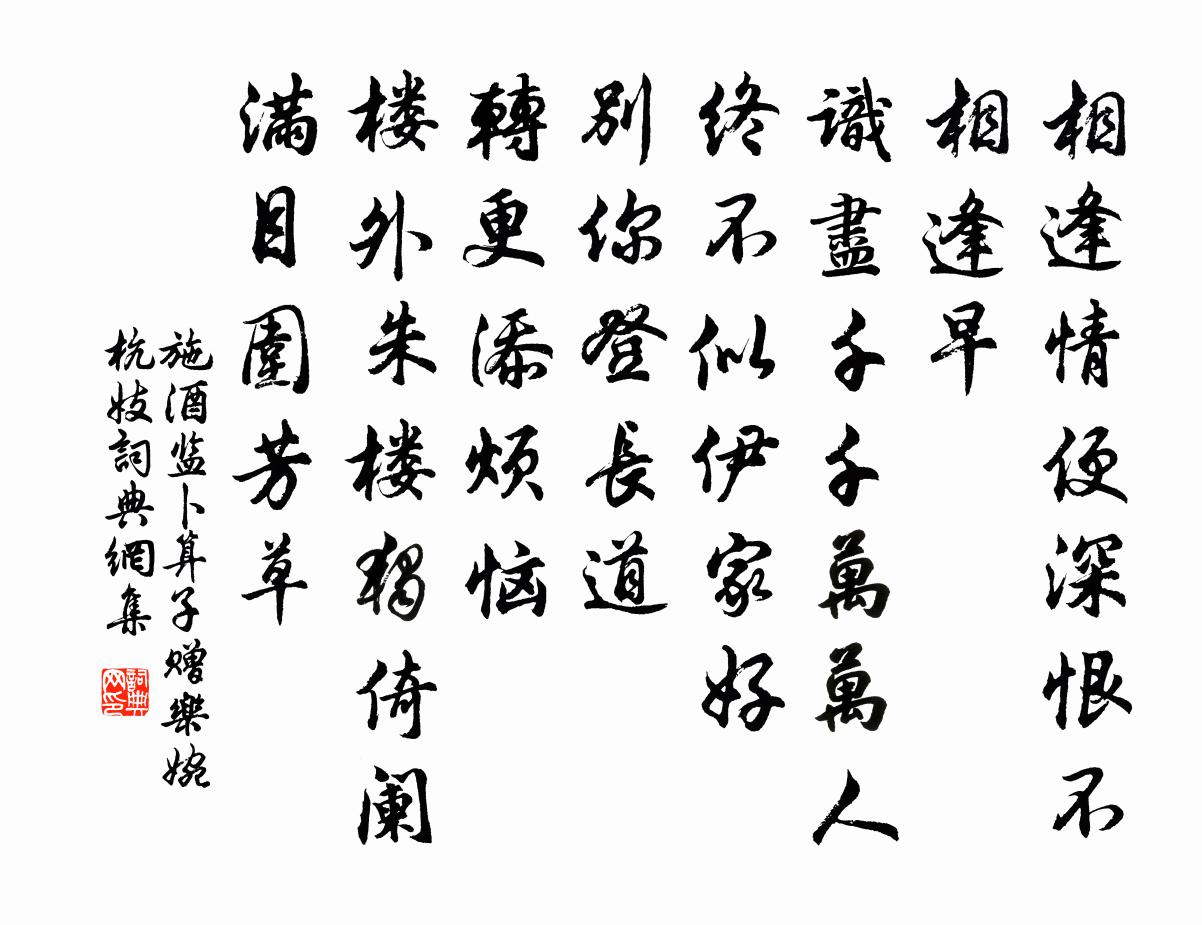 相逢情便深恨不
相逢早
識盡千千萬萬人
终不似伊家好
别你登長道
轉更添烦恼
楼外朱楼独倚阑
满目圍芳草
施酒监卜算子赠樂婉
杭妓詞典網集
詞典网印